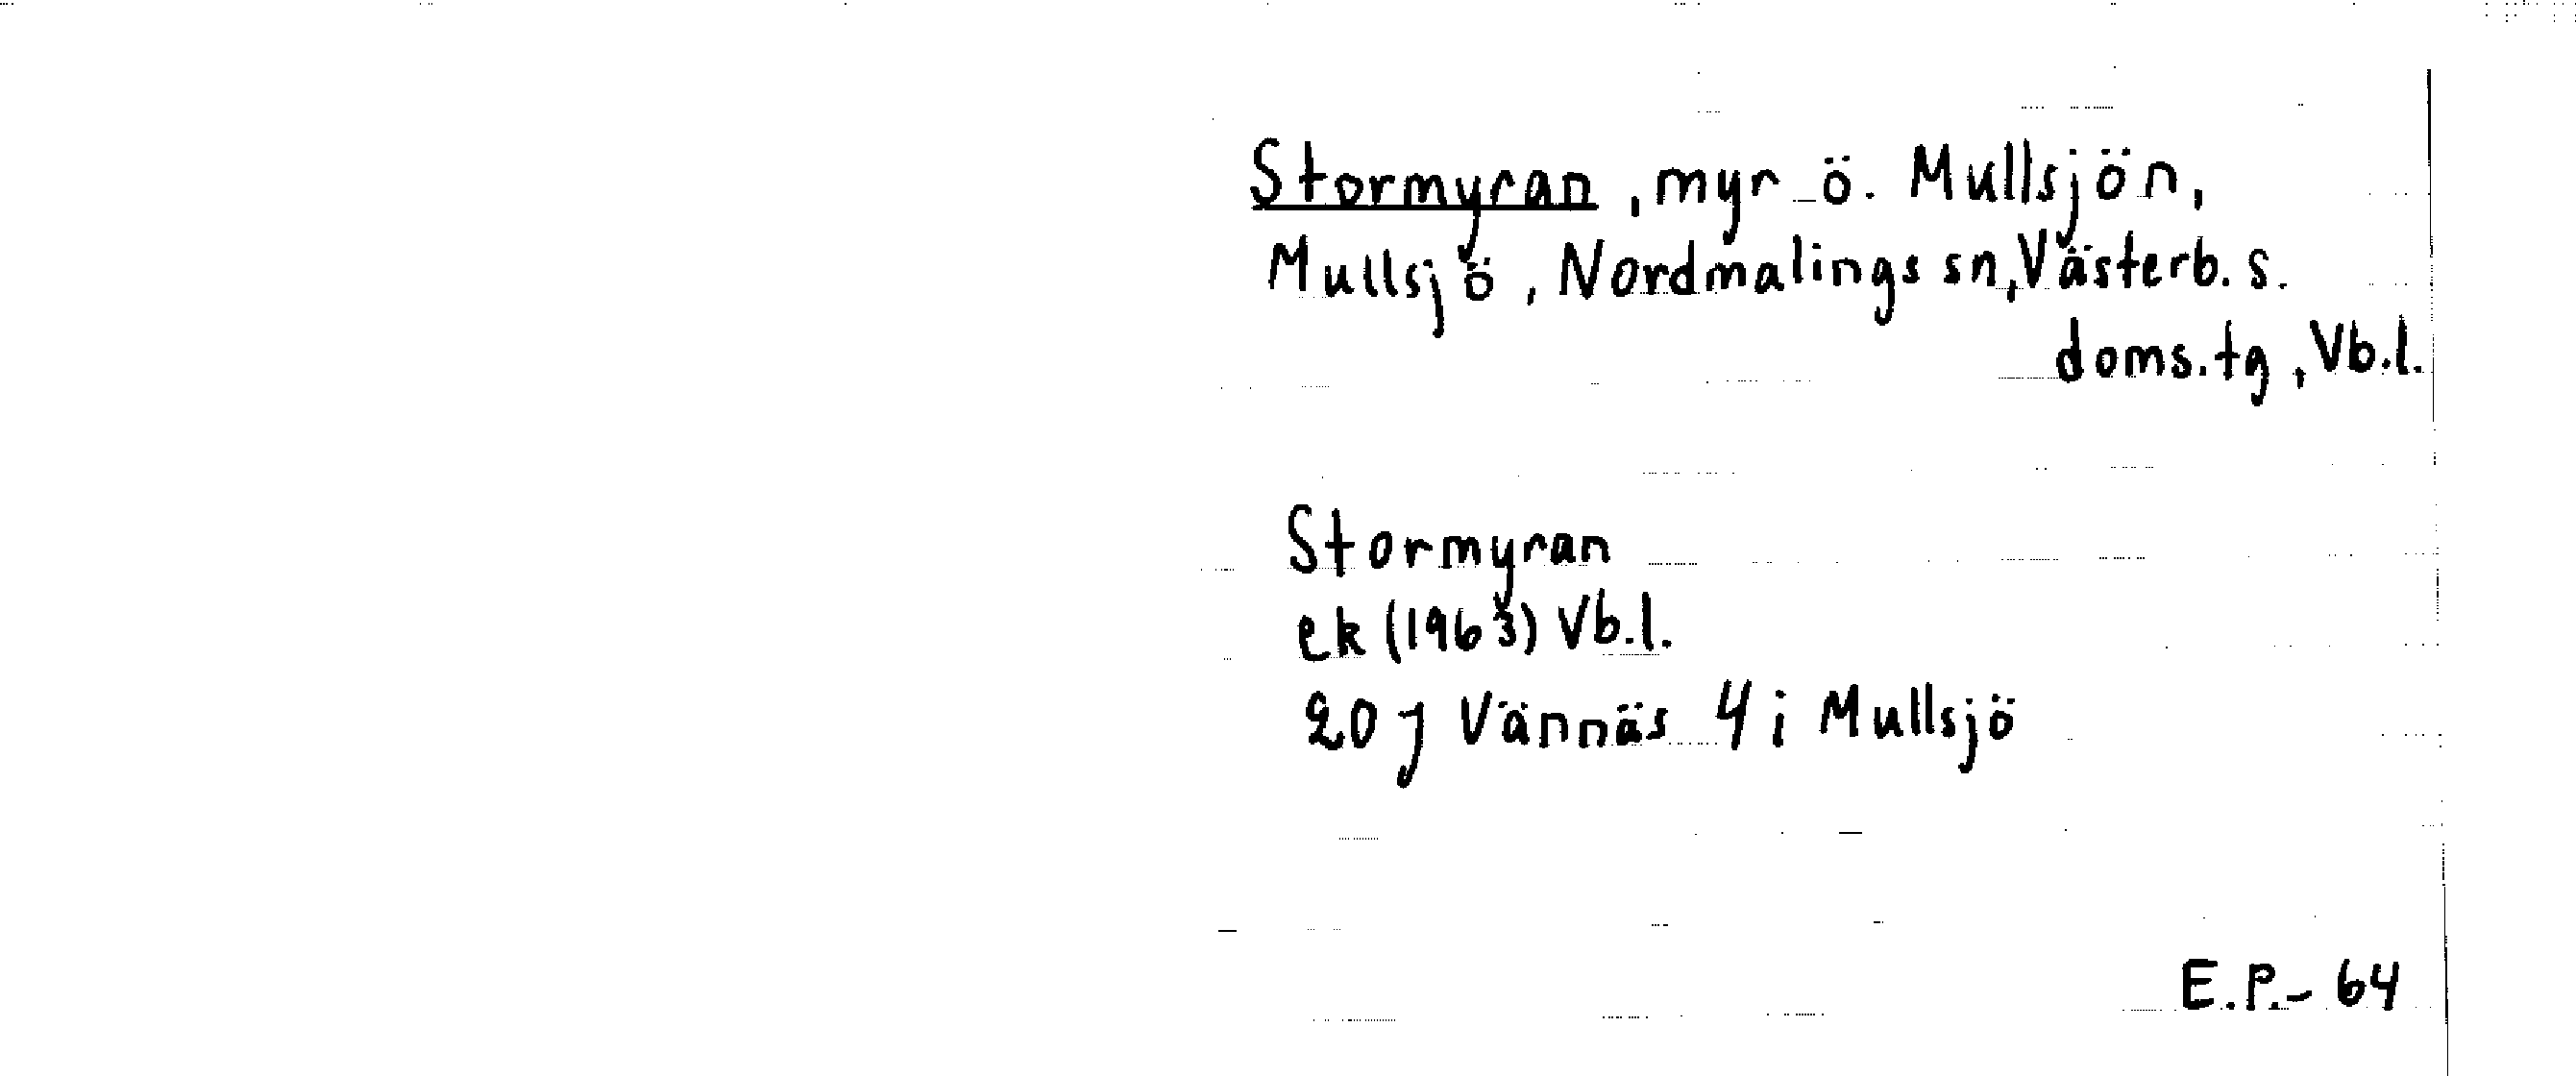 Stormyran, myr ö. Mullsjön,
Mullsjö, Nordmalings sn, Västerb. s.
doms. tg, Vb.l.
Stormyran
ek (1963) Vb.l.
20 J Vännäs 4 i Mullsjö
E.P.- 64